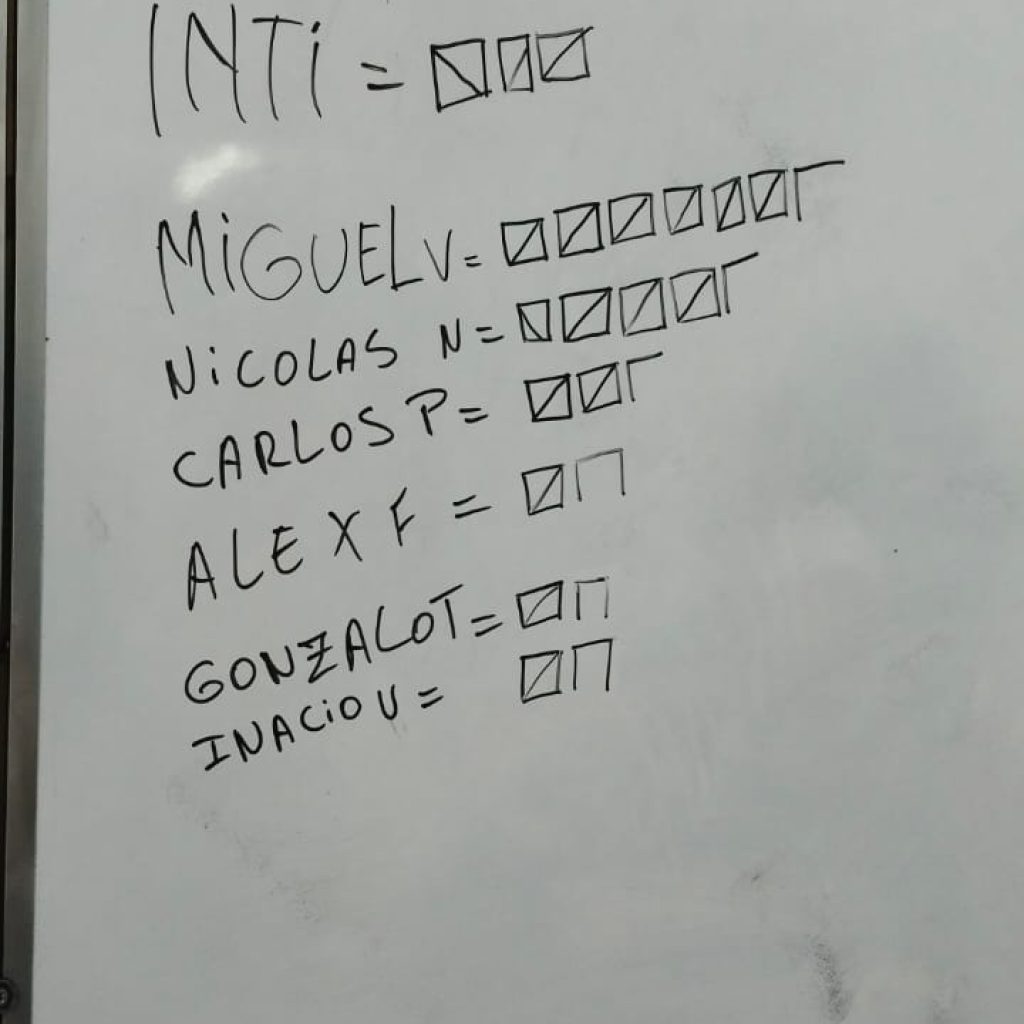 INTi =
MiGUEL V =
NiCOLAS N =
CARLOS P =
ALEX F =
GONZALO T =
INACiO U =